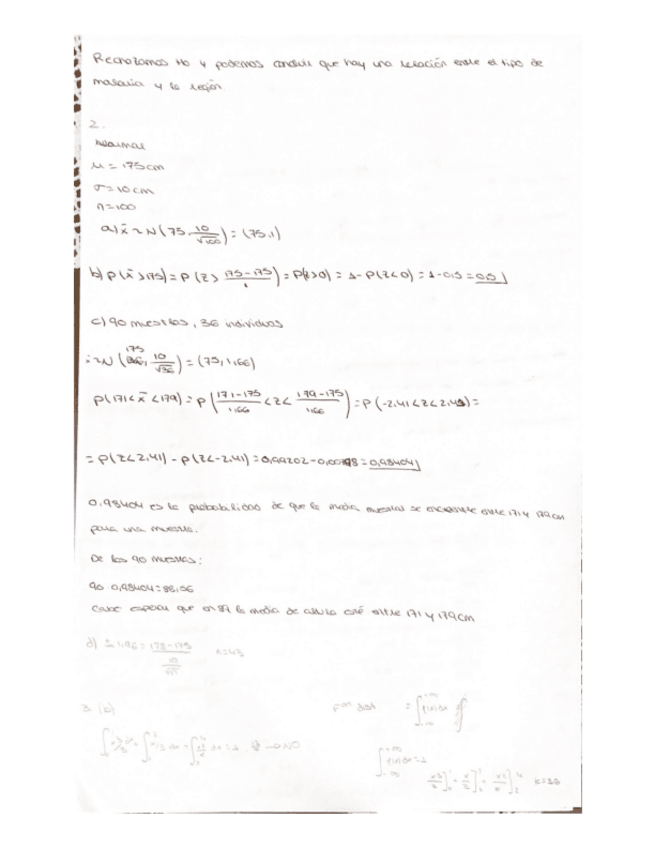 Rechazamos Ho y podemos concluir que hay una relación entre el tipo de
malaria y la región.
2.
μ = 175cm
σ = 10cm
n = 100
a) x̄ ~ N (75, 10/√100) = (75,1)
b) P(x̄ > 175) = P (Z > 175-175/1) = P(Z>0) = 1 - P(Z<0) = 1-0,5 = 0,5
c) 90 muestras, 36 individuos
N (175, 10/√36) = (75, 1,66)
P(171 < x̄ < 179) = P (171-175/1,66 < Z < 179-175/1,66) = P (-2,41 < Z < 2,41) =
= P(Z < 2,41) - P(Z < -2,41) = 0,99202 - = 0,98404
0,98404 es la probabilidad de que la media muestral se encuentre entre 171 y 179cm
para una muestra.
De las 90 muestras:
90 · 0,98404 = 88,56
Cabe esperar que en 89 la media de altura esté entre 171 y 179cm
d) 1,96 = 178-175 / 10/√n n=43
3. (b)